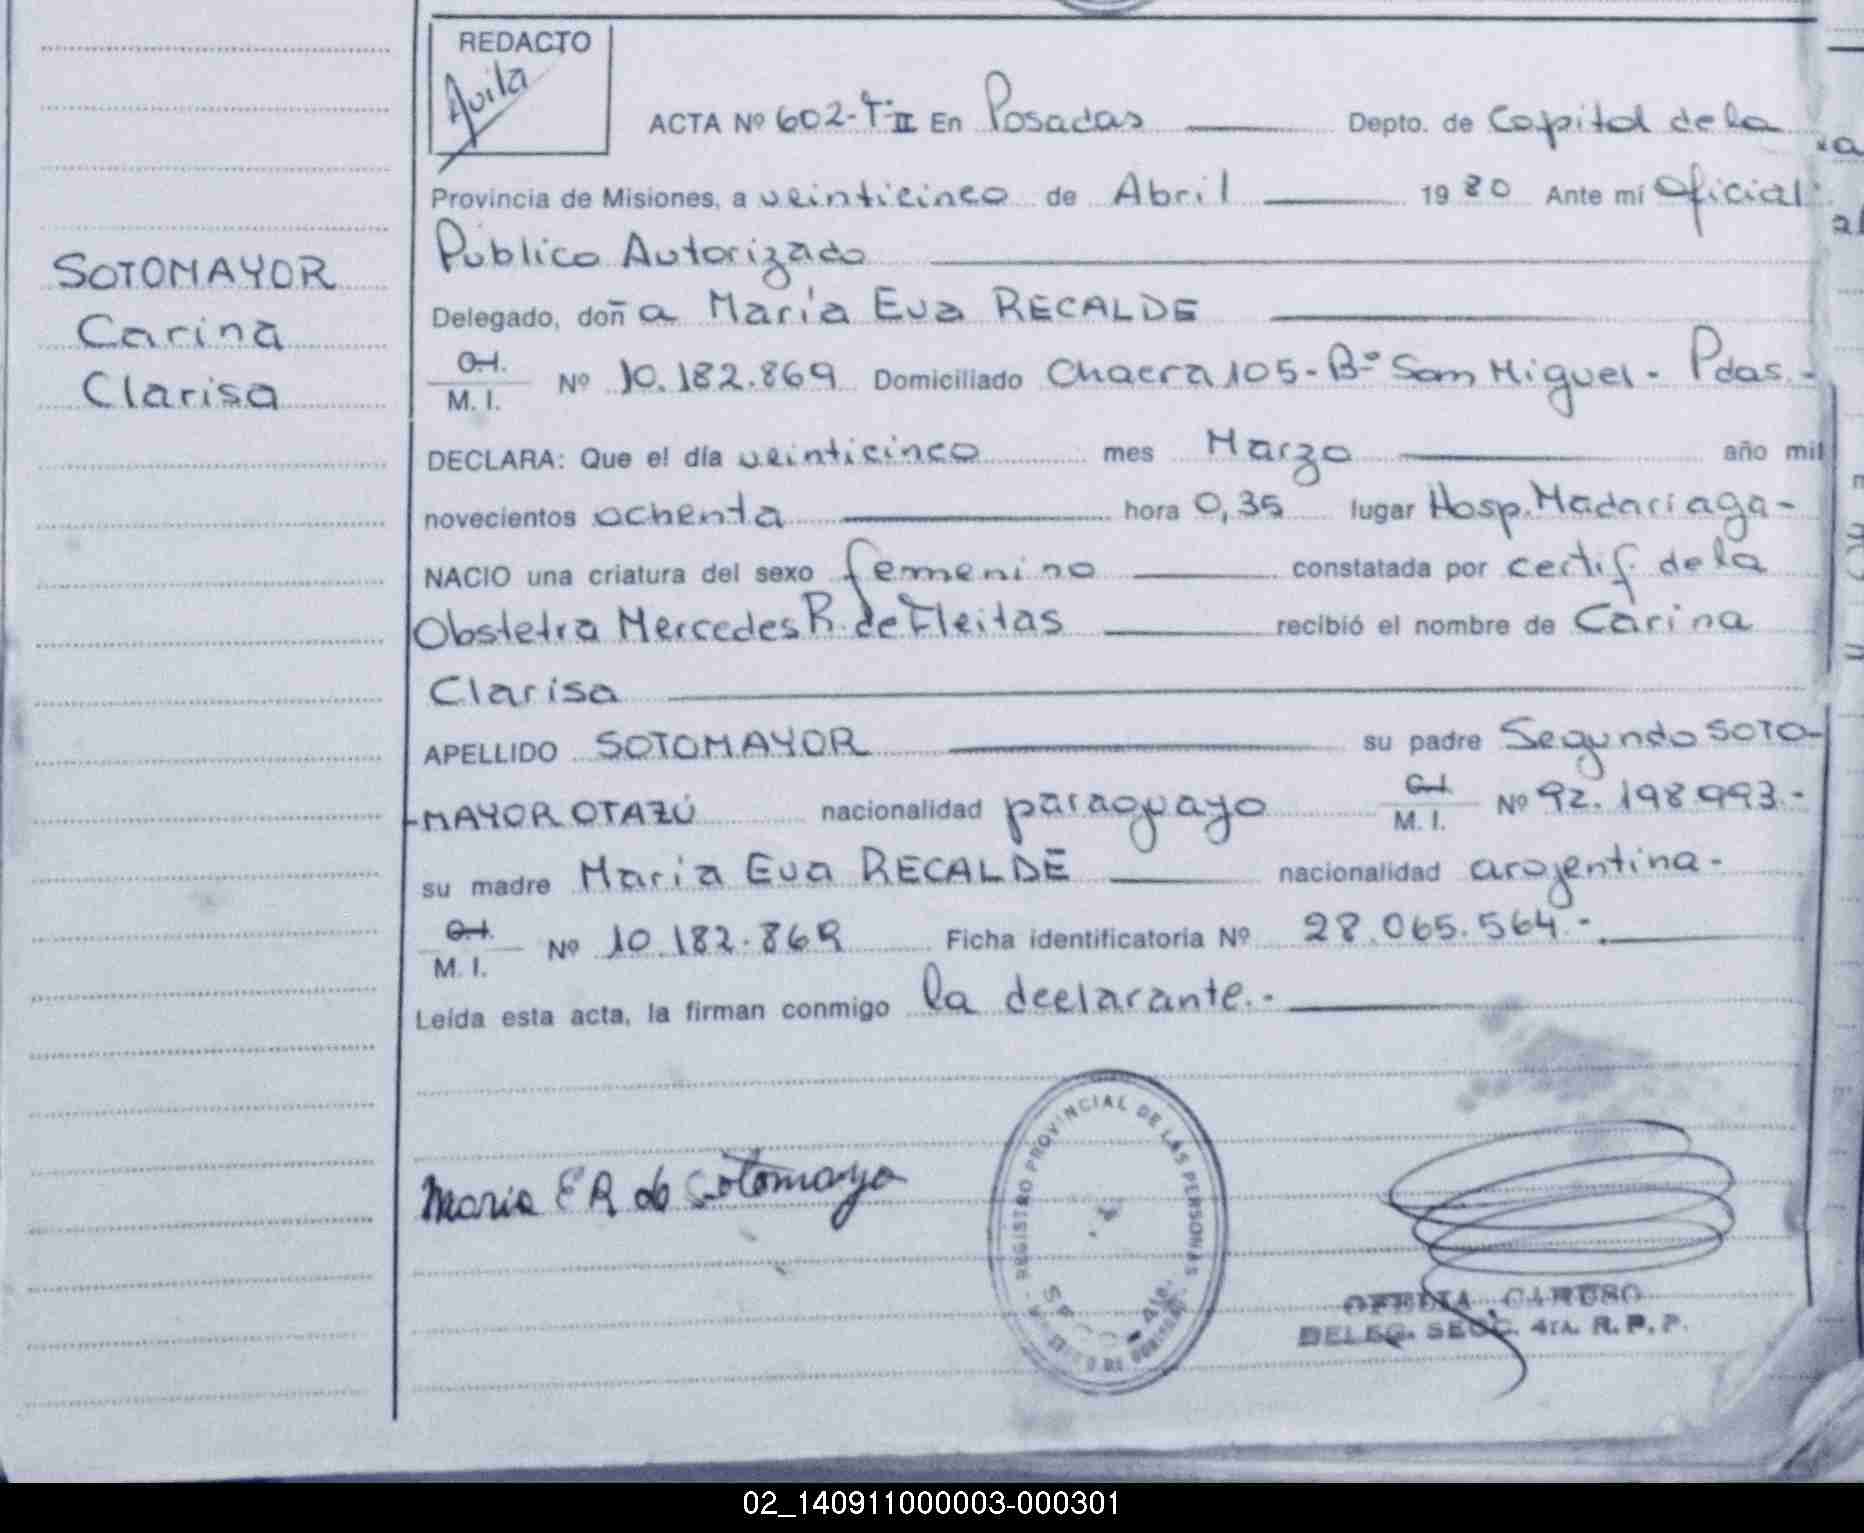 REDACTO
Avila
ACTA Nº 602-Tº II En Posadas Depto. de Capital de la
Provincia de Misiones, a veinticinco de Abril 1980 Ante mí Oficial
Público Autorizado
SOTOMAYOR
Carina
Clarisa
Delegado, doña María Eva RECALDE
C.I.
M. I. Nº 10.182.869 Domiciliado Chacra 105-Bº San Miguel - Pdas.-
DECLARA: Que el día veinticinco mes Marzo año mil
novecientos ochenta hora 0,35 lugar Hosp. Madariaga-
NACIO una criatura del sexo femenino constatada por certif. de la
Obstetra Mercedes R. de Fleitas recibió el nombre de Carina
Clarisa
APELLIDO SOTOMAYOR su padre Segundo SOTO-
-MAYOR OTAZÚ nacionalidad paraguayo C.I. M. I. Nº 92.198.993.-
su madre María Eva RECALDE nacionalidad argentina-
C.I.
M. I. Nº 10.182.869 Ficha identificatoria Nº 28.065.564.-
Leída esta acta, la firman conmigo la declarante.-
Maria E R de Sotomayo
REGISTRO PROVINCIAL DE LAS PERSONAS
SECC. 4ta.
OFELIA CARUSO
DELEG. SECC. 4TA. R.P.P.
02_140911000003-000301